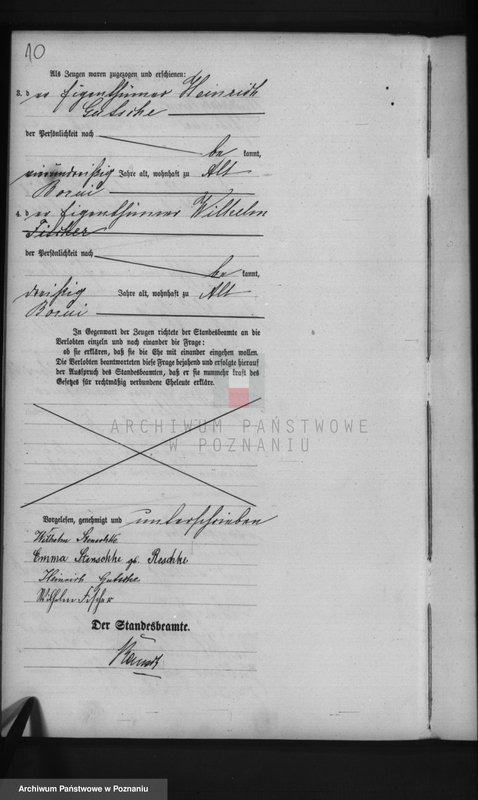 10
Als Zeugen waren zugezogen und erschienen:
3. der Eigenthümer Heinrich
Gutsche
der Persönlichkeit nach
be kannt,
einunddreißig Jahre alt, wohnhaft zu Alt
Borui
4. der Eigenthümer Wilhelm
Fischer
der Persönlichkeit nach
be kannt,
dreißig Jahre alt, wohnhaft zu Alt
Borui
In Gegenwart der Zeugen richtete der Standesbeamte an die
Verlobten einzeln und nach einander die Frage:
ob sie erklären, daß sie die Ehe mit einander eingehen wollen.
Die Verlobten beantworteten diese Frage bejahend und erfolgte hierauf
der Ausspruch des Standesbeamten, daß er sie nunmehr kraft des
Gesetzes für rechtmäßig verbundene Eheleute erkläre.
ARCHIWUM PAŃSTWOWE
W POZNANIU
Vorgelesen, genehmigt und unterschrieben
Wilhelm Stenschke
Emma Stenschke gb. Reschke
Heinrich Gutsche
Wilhelm Fischer
Der Standesbeamte.
Archiwum Państwowe w Poznaniu